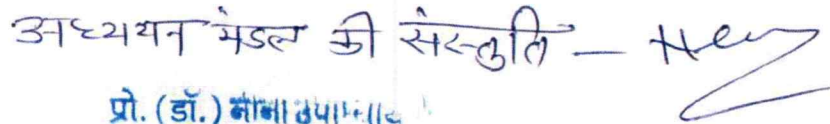 अध्ययन मंडल की संस्तुति —
प्रो. (डॉ.)